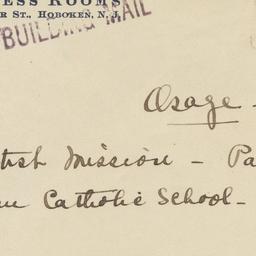 ESS ROOMS
R ST., HOBOKEN, N. J.
BUILDING MAIL
Osage -
tish Mission - Pa
Catholic School -